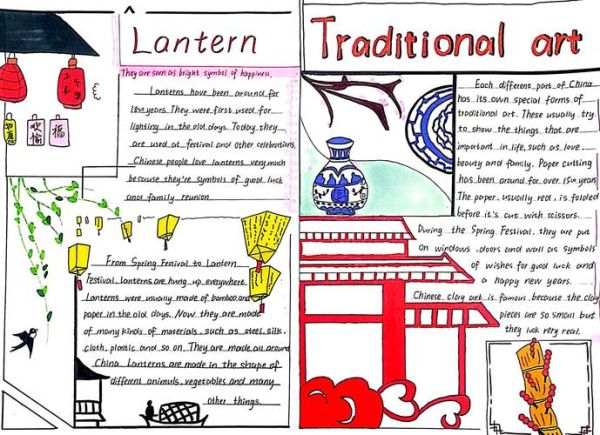 Lantern
They are seen as bright symbol of happiness.
Lanterns have been around for
1800 years. They were first used for
lighting in the old days. Today they
are used at festival and other celebrations.
Chinese people love lanterns very much
because they're symbols of good luck
and family reunion
From Spring Fesnival to Lantern
Festival, Lanterns are hung up everywhere.
Lanterns were usually made of bamboo and
paper in the old days. Now they are made
of many kinds of materials, such as steel, silk,
cloth, plastic and so on. They are made all around
China. Lanterns are made in the shape of
different animals, vegetables and many
other things.
福
Traditional art
Each different part of China
has its own special forms of
traditional art. These usually try
to show the things that are
important in life, such as love
beauty and family. Paper cutting
has been around for over 1500 years
The paper, usually red, is folded
before it's cut with scissors.
During the Spring Festival, they are put
on windows, doors and wall as symbols
of wishes for good luck and
a happy new years.
Chinese clay art is famous because the clay
pieces are so small but
they look very real.